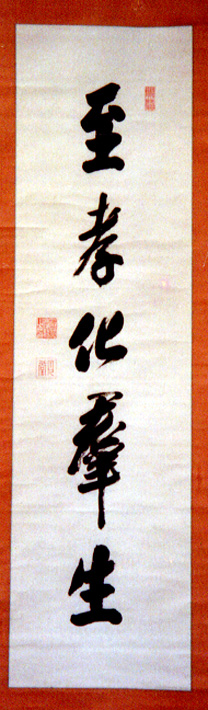 至孝化羣生